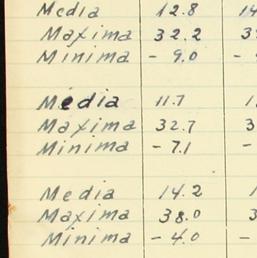 Media 12.8 14
Maxima 32.2 3
Minima - 9.0 -
Media 11.7 1
Maxima 32.7 3
Minima - 7.1 -
Media 14.2 1
Maxima 38.0 3
Minima - 4.0 -